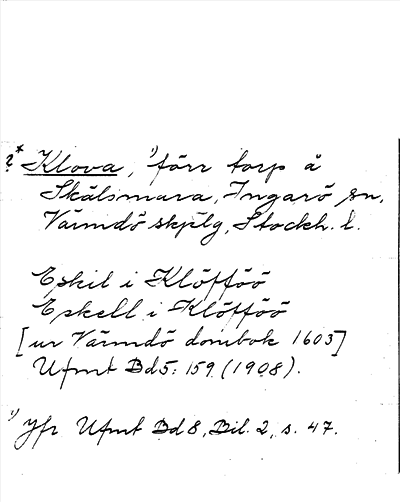 ?* Klova, ¹) förr torp å
Skälsmara, Ingarö sn,
Värmdö skplg, Stockh. l.
Eskil i Klöfföö
Eskell i Klöfföö
[ur Värmdö dombok 1603]
Ufmt Bd 5: 159 (1908).
¹) Jfr Ufmt Bd 8, Bil. 2, s. 47.